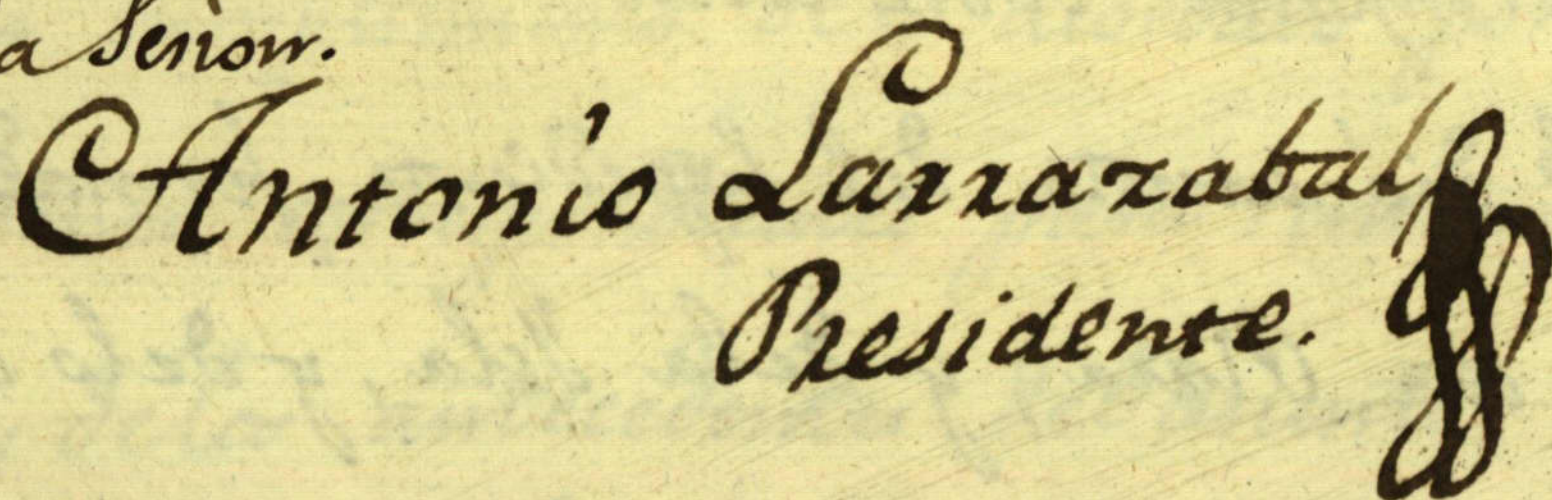 a Senior.
Antonio Larrazabal
Presidente.